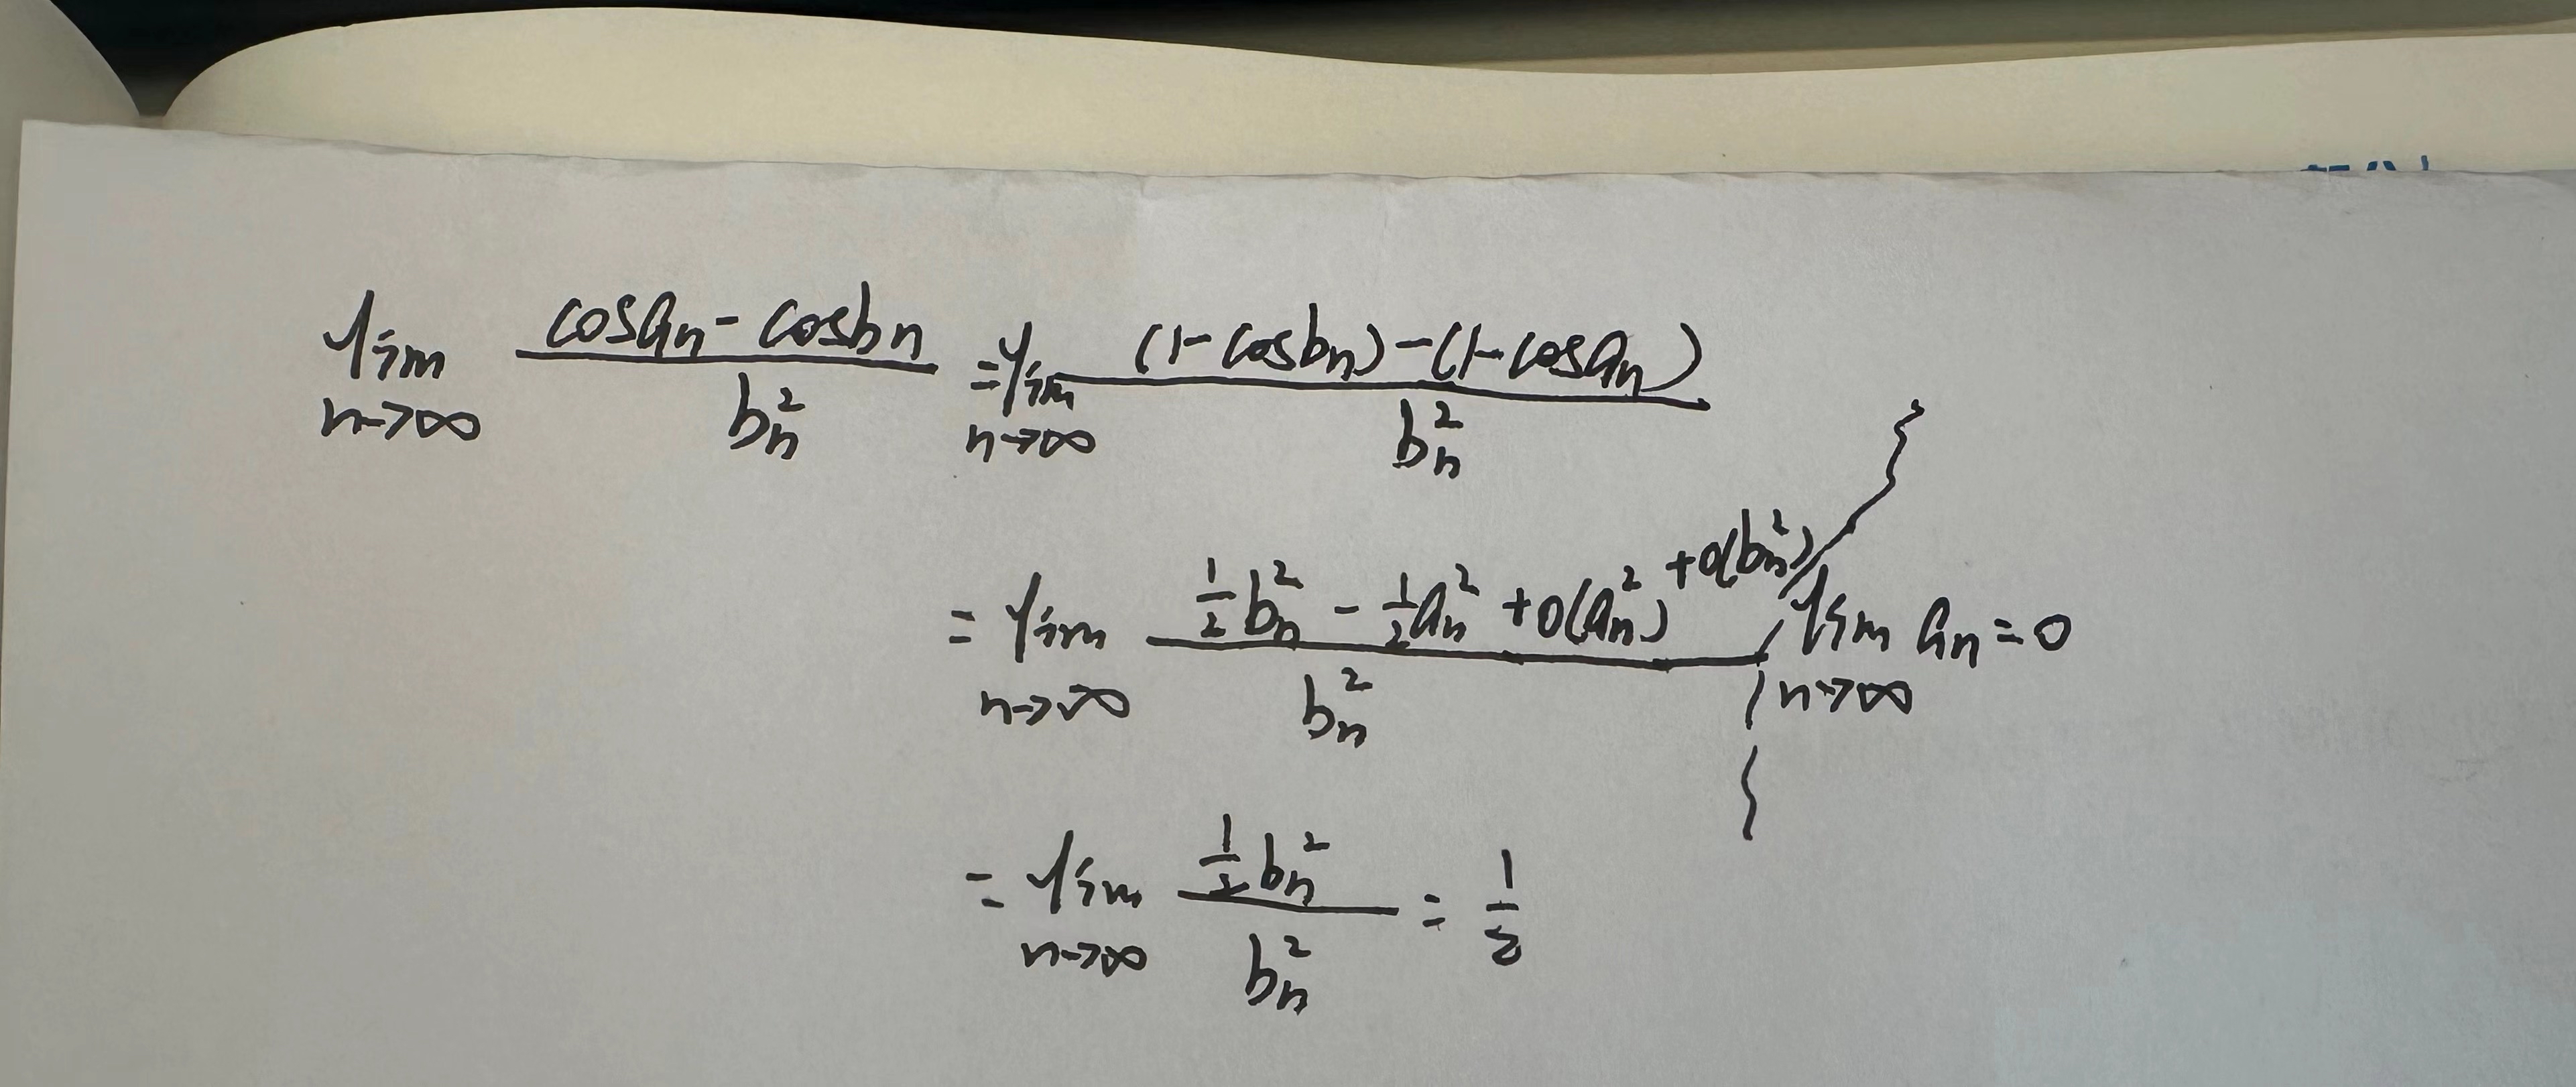 lim n→∞ (cos aₙ - cos bₙ) / bₙ² = lim n→∞ ((1-cos bₙ)-(1-cos aₙ)) / bₙ²
= lim n→∞ (½bₙ² - ½aₙ² + o(aₙ²) + o(bₙ²)) / bₙ² lim n→∞ aₙ = 0
= lim n→∞ ½bₙ² / bₙ² = ½